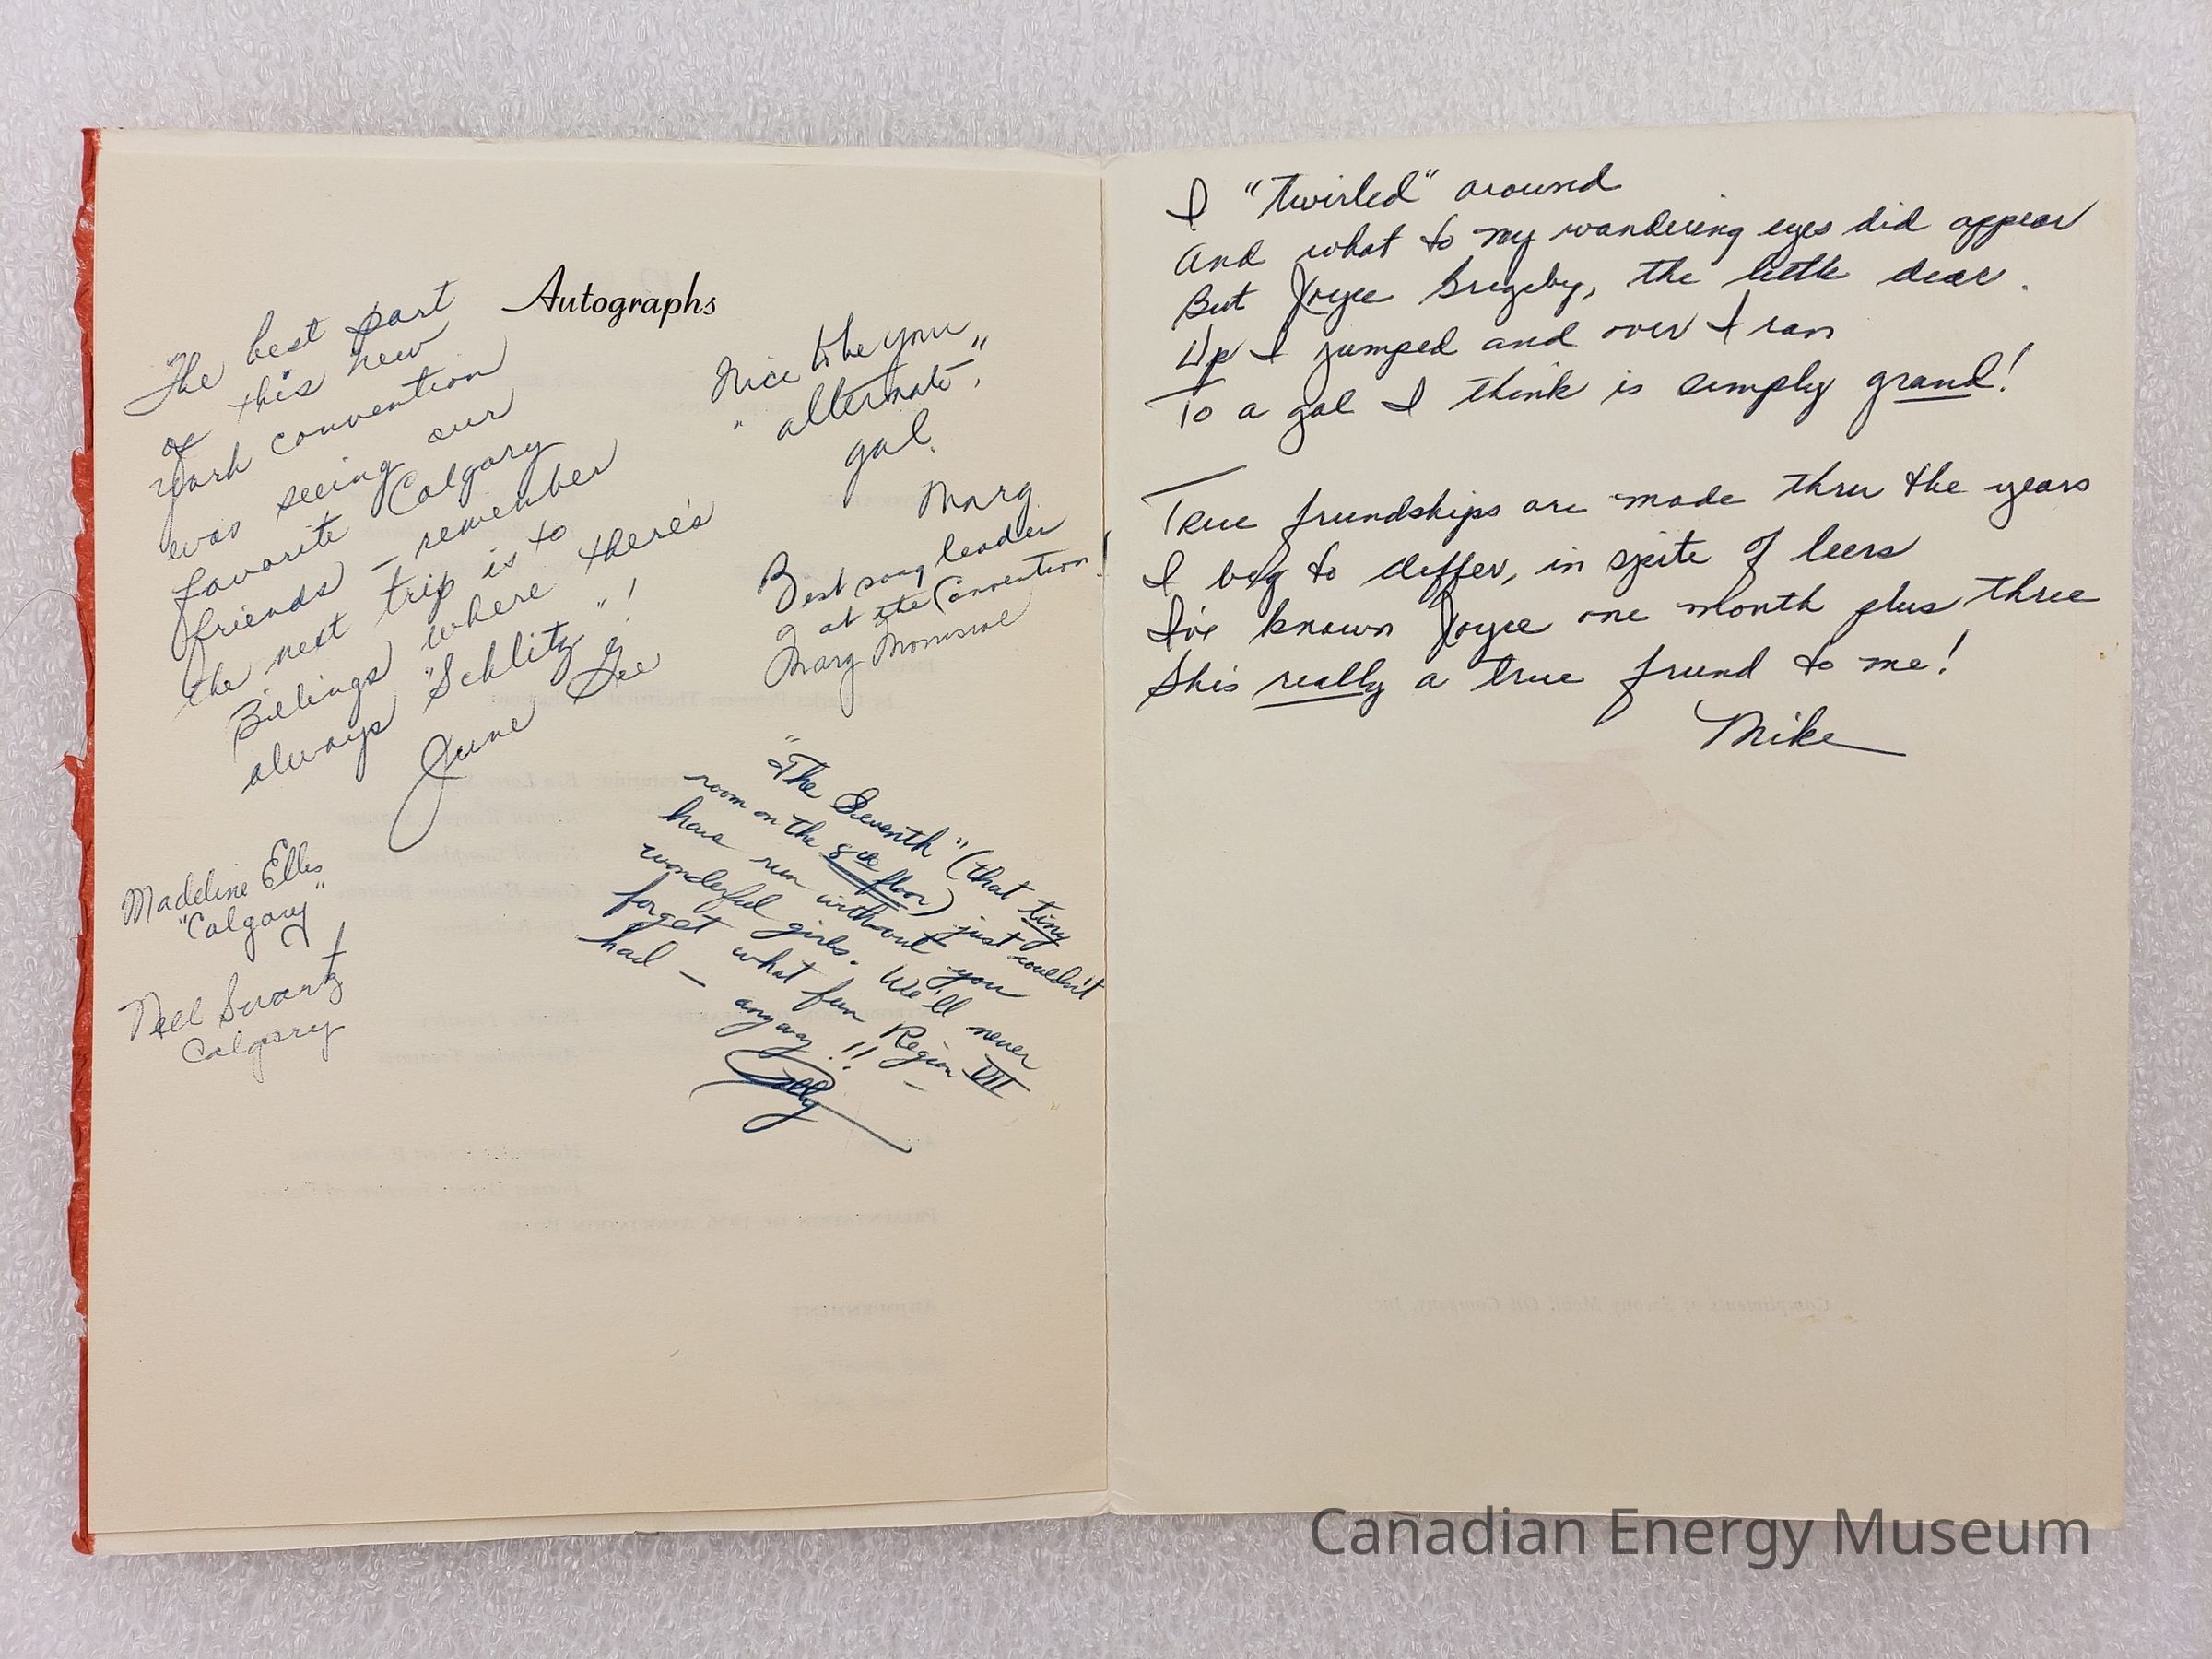 Autographs
The best part
of this New
York convention
was seeing our
favorite Calgary
friends – remember
the next trip is to
Billings where there's
always "Schlitz"!
June Gee
Nice to be your
"alternate"
gal.
Marg
Best song leader
at the Convention!
Marg
Madeline Ellis
"Calgary"
Nell Swartz
Calgary
"The Seventh" (that tiny
room on the 8th floor) just couldn't
have run without you
wonderful girls. We'll never
forget what fun Region VII
had – anyway!!
I "twirled" around
And what to my wandering eyes did appear
But Joyce Grigsby, the little dear.
Up I jumped and over I ran
To a gal I think is simply grand!
True friendships are made thru the years
I beg to differ, in spite of leers
I've known Joyce one month plus three
Shis really a true friend to me!
Mike
PRESENTATION OF 1956 ASSOCIATION
ADJOURNMENT
Compliments of Socony Mobil Oil Company, Inc.
Canadian Energy Museum